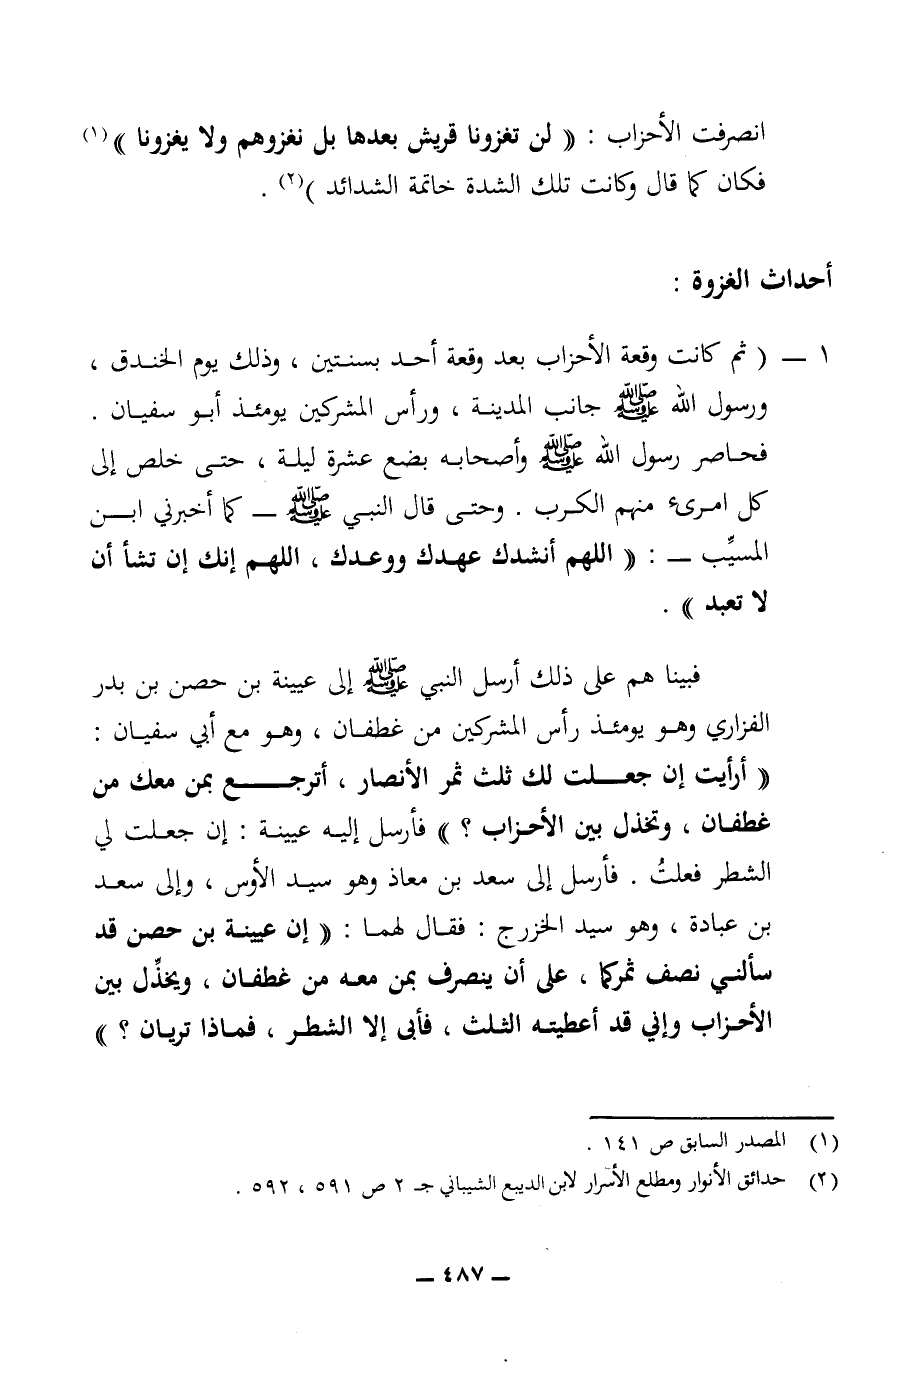 انصرفت الأحزاب : « لن تغزونا قريش بعدها بل نغزوهم ولا يغزونا »(١)
فكان كما قال وكانت تلك الشدة خاتمة الشدائد )(٢) .
أحداث الغزوة :
١ ــ ( ثم كانت وقعة الأحزاب بعد وقعة أحد بسنتين ، وذلك يوم الخندق ،
ورسول الله ﷺ جانب المدينة ، ورأس المشركين يومئذ أبو سفيان .
فحاصر رسول الله ﷺ وأصحابه بضع عشرة ليلة ، حتى خلص إلى
كل امرىء منهم الكرب . وحتى قال النبي ﷺ ــ كما أخبرني ابن
المسيِّب ــ : « اللهم أنشدك عهدك ووعدك ، اللهم إنك إن تشأ أن
لا تعبد » .
فبينا هم على ذلك أرسل النبي ﷺ إلى عيينة بن حصن بن بدر
الفزاري وهو يومئذ رأس المشركين من غطفان ، وهو مع أبي سفيان :
« أرأيت إن جعلت لك ثلث ثمر الأنصار ، أترجع بمن معك من
غطفان ، وتخذل بين الأحزاب ؟ » فأرسل إليه عيينة : إن جعلت لي
الشطر فعلتُ . فأرسل إلى سعد بن معاذ وهو سيد الأوس ، وإلى سعد
بن عبادة ، وهو سيد الخزرج : فقال لهما : « إن عيينة بن حصن قد
سألني نصف ثمركما ، على أن ينصرف بمن معه من غطفان ، ويخذِّل بين
الأحزاب وإني قد أعطيته الثلث ، فأبى إلا الشطر ، فماذا تريان ؟ »
(١) المصدر السابق ص ١٤١ .
(٢) حدائق الأنوار ومطلع الأسرار لابن الديبع الشيباني جـ ٢ ص ٥٩١ ، ٥٩٢ .
ــ ٤٨٧ ــ